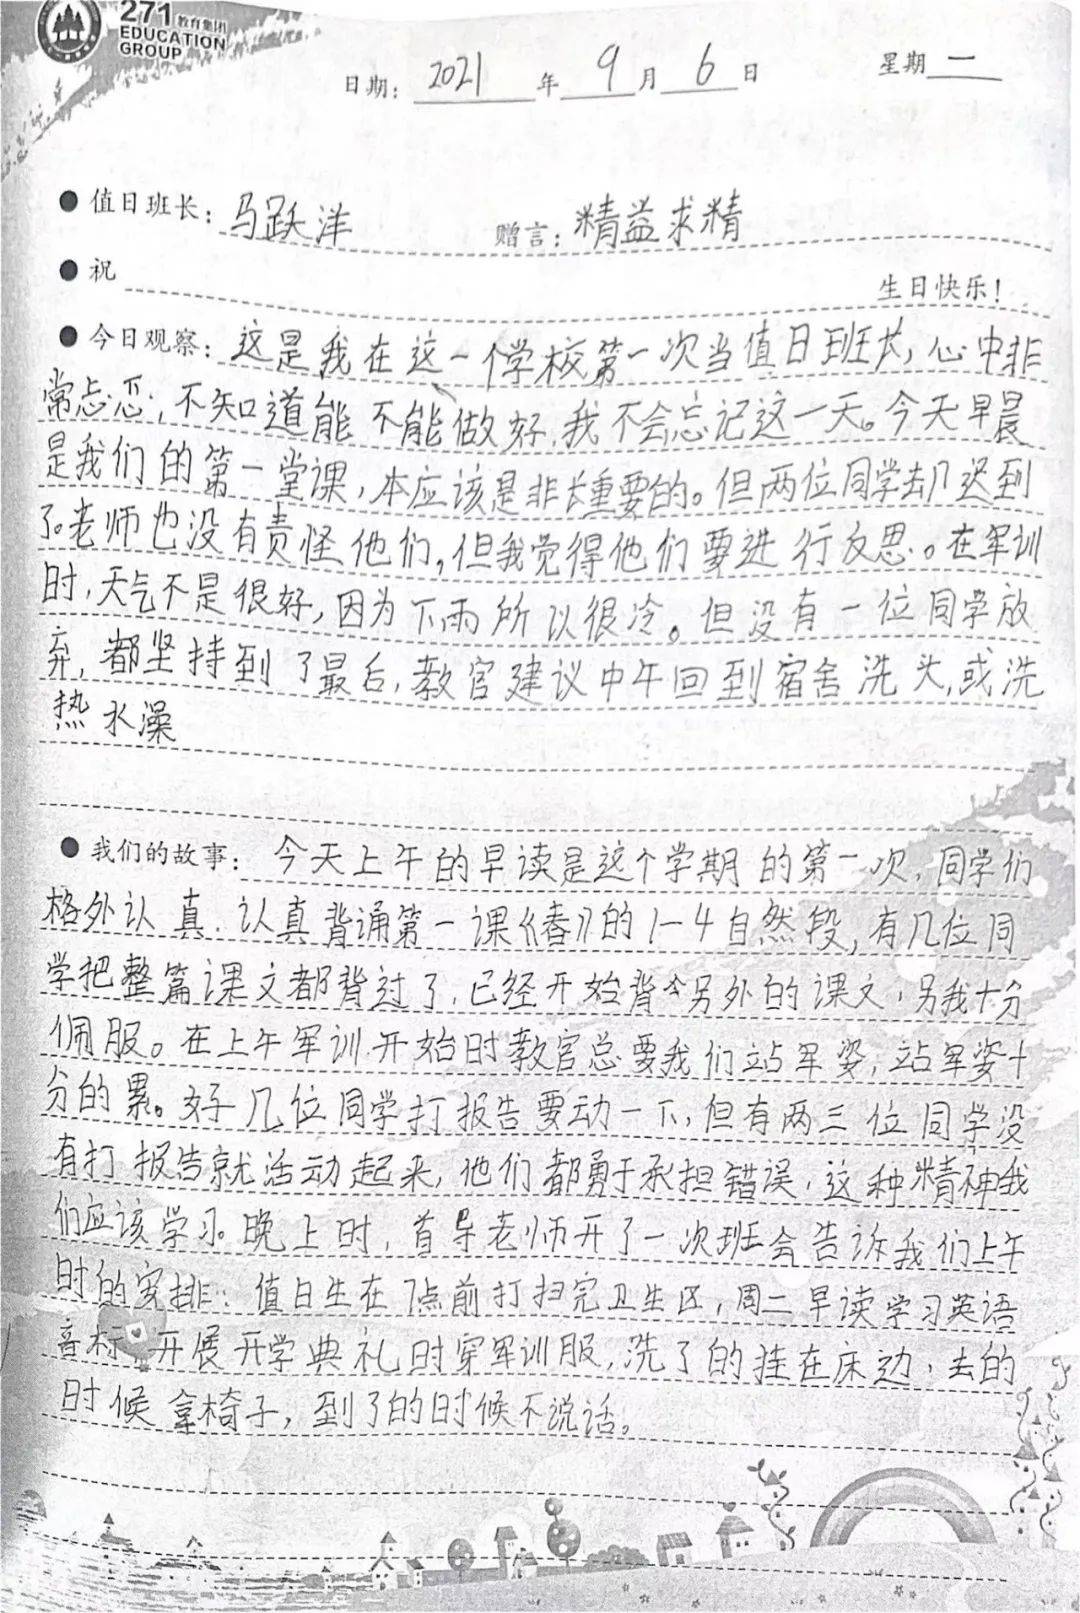 271教育集团
EDUCATION
GROUP
日期：2021年9月6日 星期一
●值日班长：马跃洋 赠言：精益求精
●祝 生日快乐！
●今日观察：这是我在这一个学校第一次当值日班长，心中非
常忐忑，不知道能不能做好，我不会忘记这一天。今天早晨
是我们的第一堂课，本应该是非常重要的。但两位同学却迟到
了。老师也没有责怪他们，但我觉得他们要进行反思。在军训
时，天气不是很好，因为下雨所以很冷。但没有一位同学放
弃，都坚持到了最后，教官建议中午回到宿舍洗头，或洗
热水澡
●我们的故事：今天上午的早读是这个学期的第一次，同学们
格外认真，认真背诵第一课《春》的1-4自然段，有几位同
学把整篇课文都背过了，已经开始背另外的课文，另我十分
佩服。在上午军训开始时教官总要我们站军姿，站军姿十
分的累。好几位同学打报告要动一下，但有两三位同学没
有打报告就活动起来，他们都勇于承担错误，这种精神我
们应该学习。晚上时，首导老师开了一次班会告诉我们上午
时的安排：值日生在7点前打扫完卫生区，周二早读学习英语
音标，开展开学典礼时穿军训服，洗了的挂在床边，去的
时候拿椅子，到了的时候不说话。